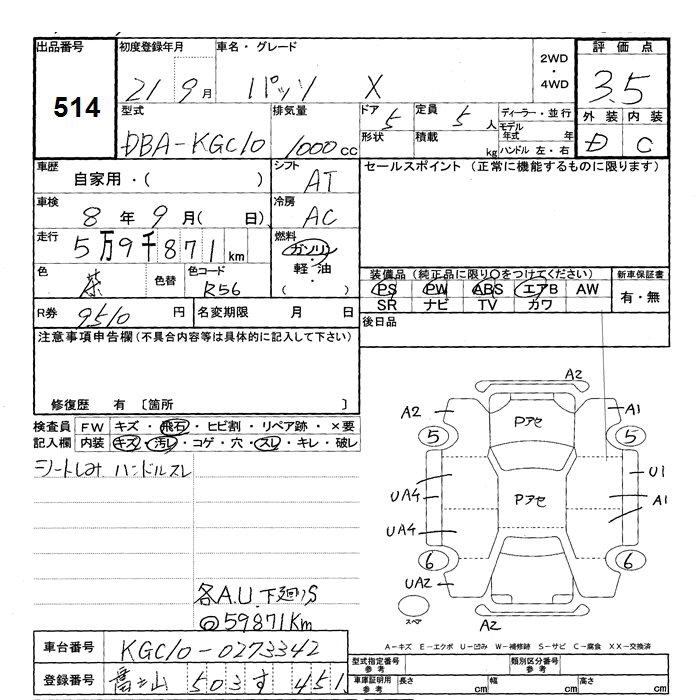 出品番号 初度登録年月 車名・グレード 2WD・4WD 評価点
514 21 9月 パッソ X 3.5
型式 排気量 ドア 5 定員 5人 ディーラー・並行 外装 内装
DBA-KGC10 1000cc 形状 積載 kg モデル年式 年 D C
ハンドル 左・右
車歴 シフト セールスポイント (正常に機能するものに限ります)
自家用・( ) AT
車検 冷房
8年 9月( 日) AC
走行 燃料
5万9千871km ガソリン・軽油・( )
色 色替 色コード 装備品 (純正品に限り○をつけてください) 新車保証書
茶 R56 PS PW ABS エアB AW 有・無
SR ナビ TV カワ
R券 9510円 名変期限 月 日 後日品
注意事項申告欄(不具合内容等は具体的に記入して下さい)
修復歴 有 〔箇所 〕
検査員 FW キズ・飛石・ヒビ割・リペア跡・×要
記入欄 内装 キズ・汚レ・コゲ・穴・スレ・キレ・破レ
シートしみ ハンドルスレ
A2
A2 Pアセ A1
5 5
U1
UA4 Pアセ A1
UA4
6 6
UA2
スペア A2
各A.U 下廻りS
@59871Km
A-キズ E-エクボ U-凹み W-補修跡 S-サビ C-腐食 XX-交換済
車台番号 KGC10-0273342
型式指定番号 参考 類別区分番号 参考
登録番号 503 す 451
車庫証明用 参考 長さ cm 幅 cm 高さ cm